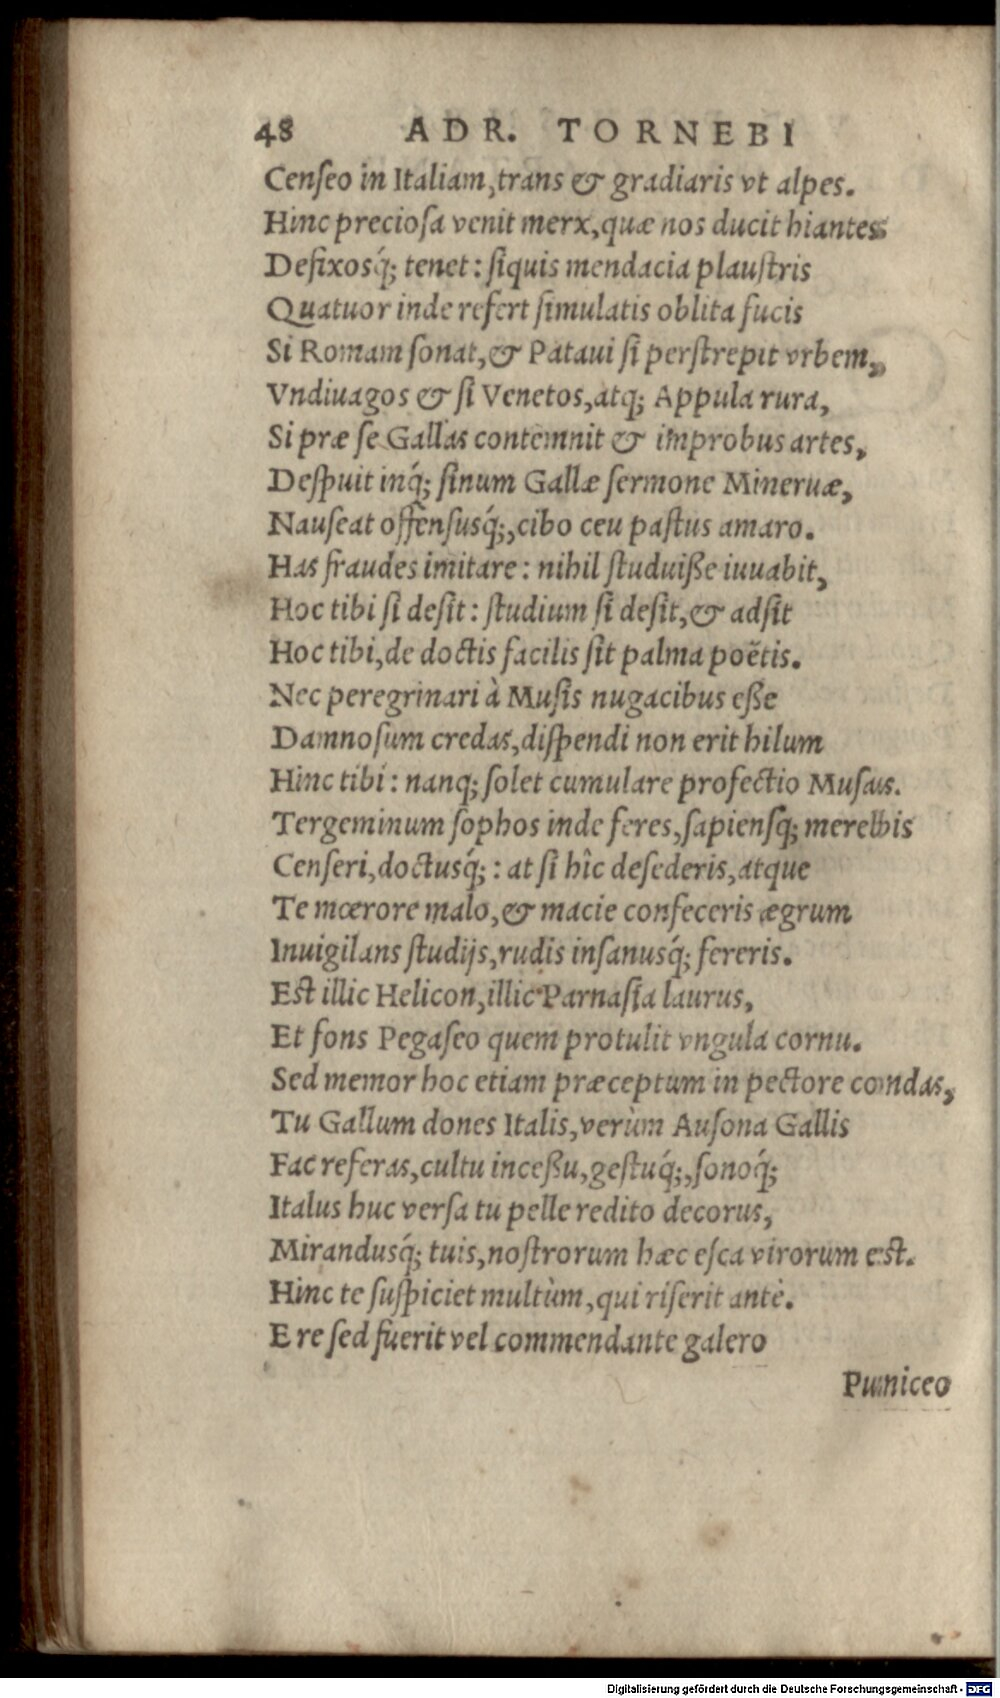 48 ADR. TORNEBI
Censeo in Italiam, trans & gradiaris vt alpes.
Hinc preciosa venit merx, quæ nos ducit hiantes
Defixosq́; tenet: siquis mendacia plaustris
Quatuor inde refert simulatis oblita fucis
Si Romam sonat, & Pataui si perstrepit vrbem,
Vndiuagos & si Venetos, atq; Appula rura,
Si præ se Gallas contemnit & improbus artes,
Despuit inq́; sinum Gallæ sermone Mineruæ,
Nauseat offensusq́;, cibo ceu pastus amaro.
Has fraudes imitare: nihil studuiße iuuabit,
Hoc tibi si desit: studium si desit, & adsit
Hoc tibi, de doctis facilis sit palma poëtis.
Nec peregrinari à Musis nugacibus eße
Damnosum credas, dispendi non erit hilum
Hinc tibi: nanq; solet cumulare profectio Musas.
Tergeminum sophos inde feres, sapiensq; merebis
Censeri, doctusq́;: at si hîc desederis, atque
Te mœrore malo, & macie confeceris ægrum
Inuigilans studijs, rudis insanusq́; fereris.
Est illic Helicon, illic Parnasia laurus,
Et fons Pegaseo quem protulit vngula cornu.
Sed memor hoc etiam præceptum in pectore condas,
Tu Gallum dones Italis, verùm Ausona Gallis
Fac referas, cultu inceßu, gestuq́;, sonoq́;
Italus huc versa tu pelle redito decorus,
Mirandusq́; tuis, nostrorum hæc esca virorum est.
Hinc te suspiciet multùm, qui riserit antè.
E re sed fuerit vel commendante galero
Puniceo
Digitalisierung gefördert durch die Deutsche Forschungsgemeinschaft - DFG